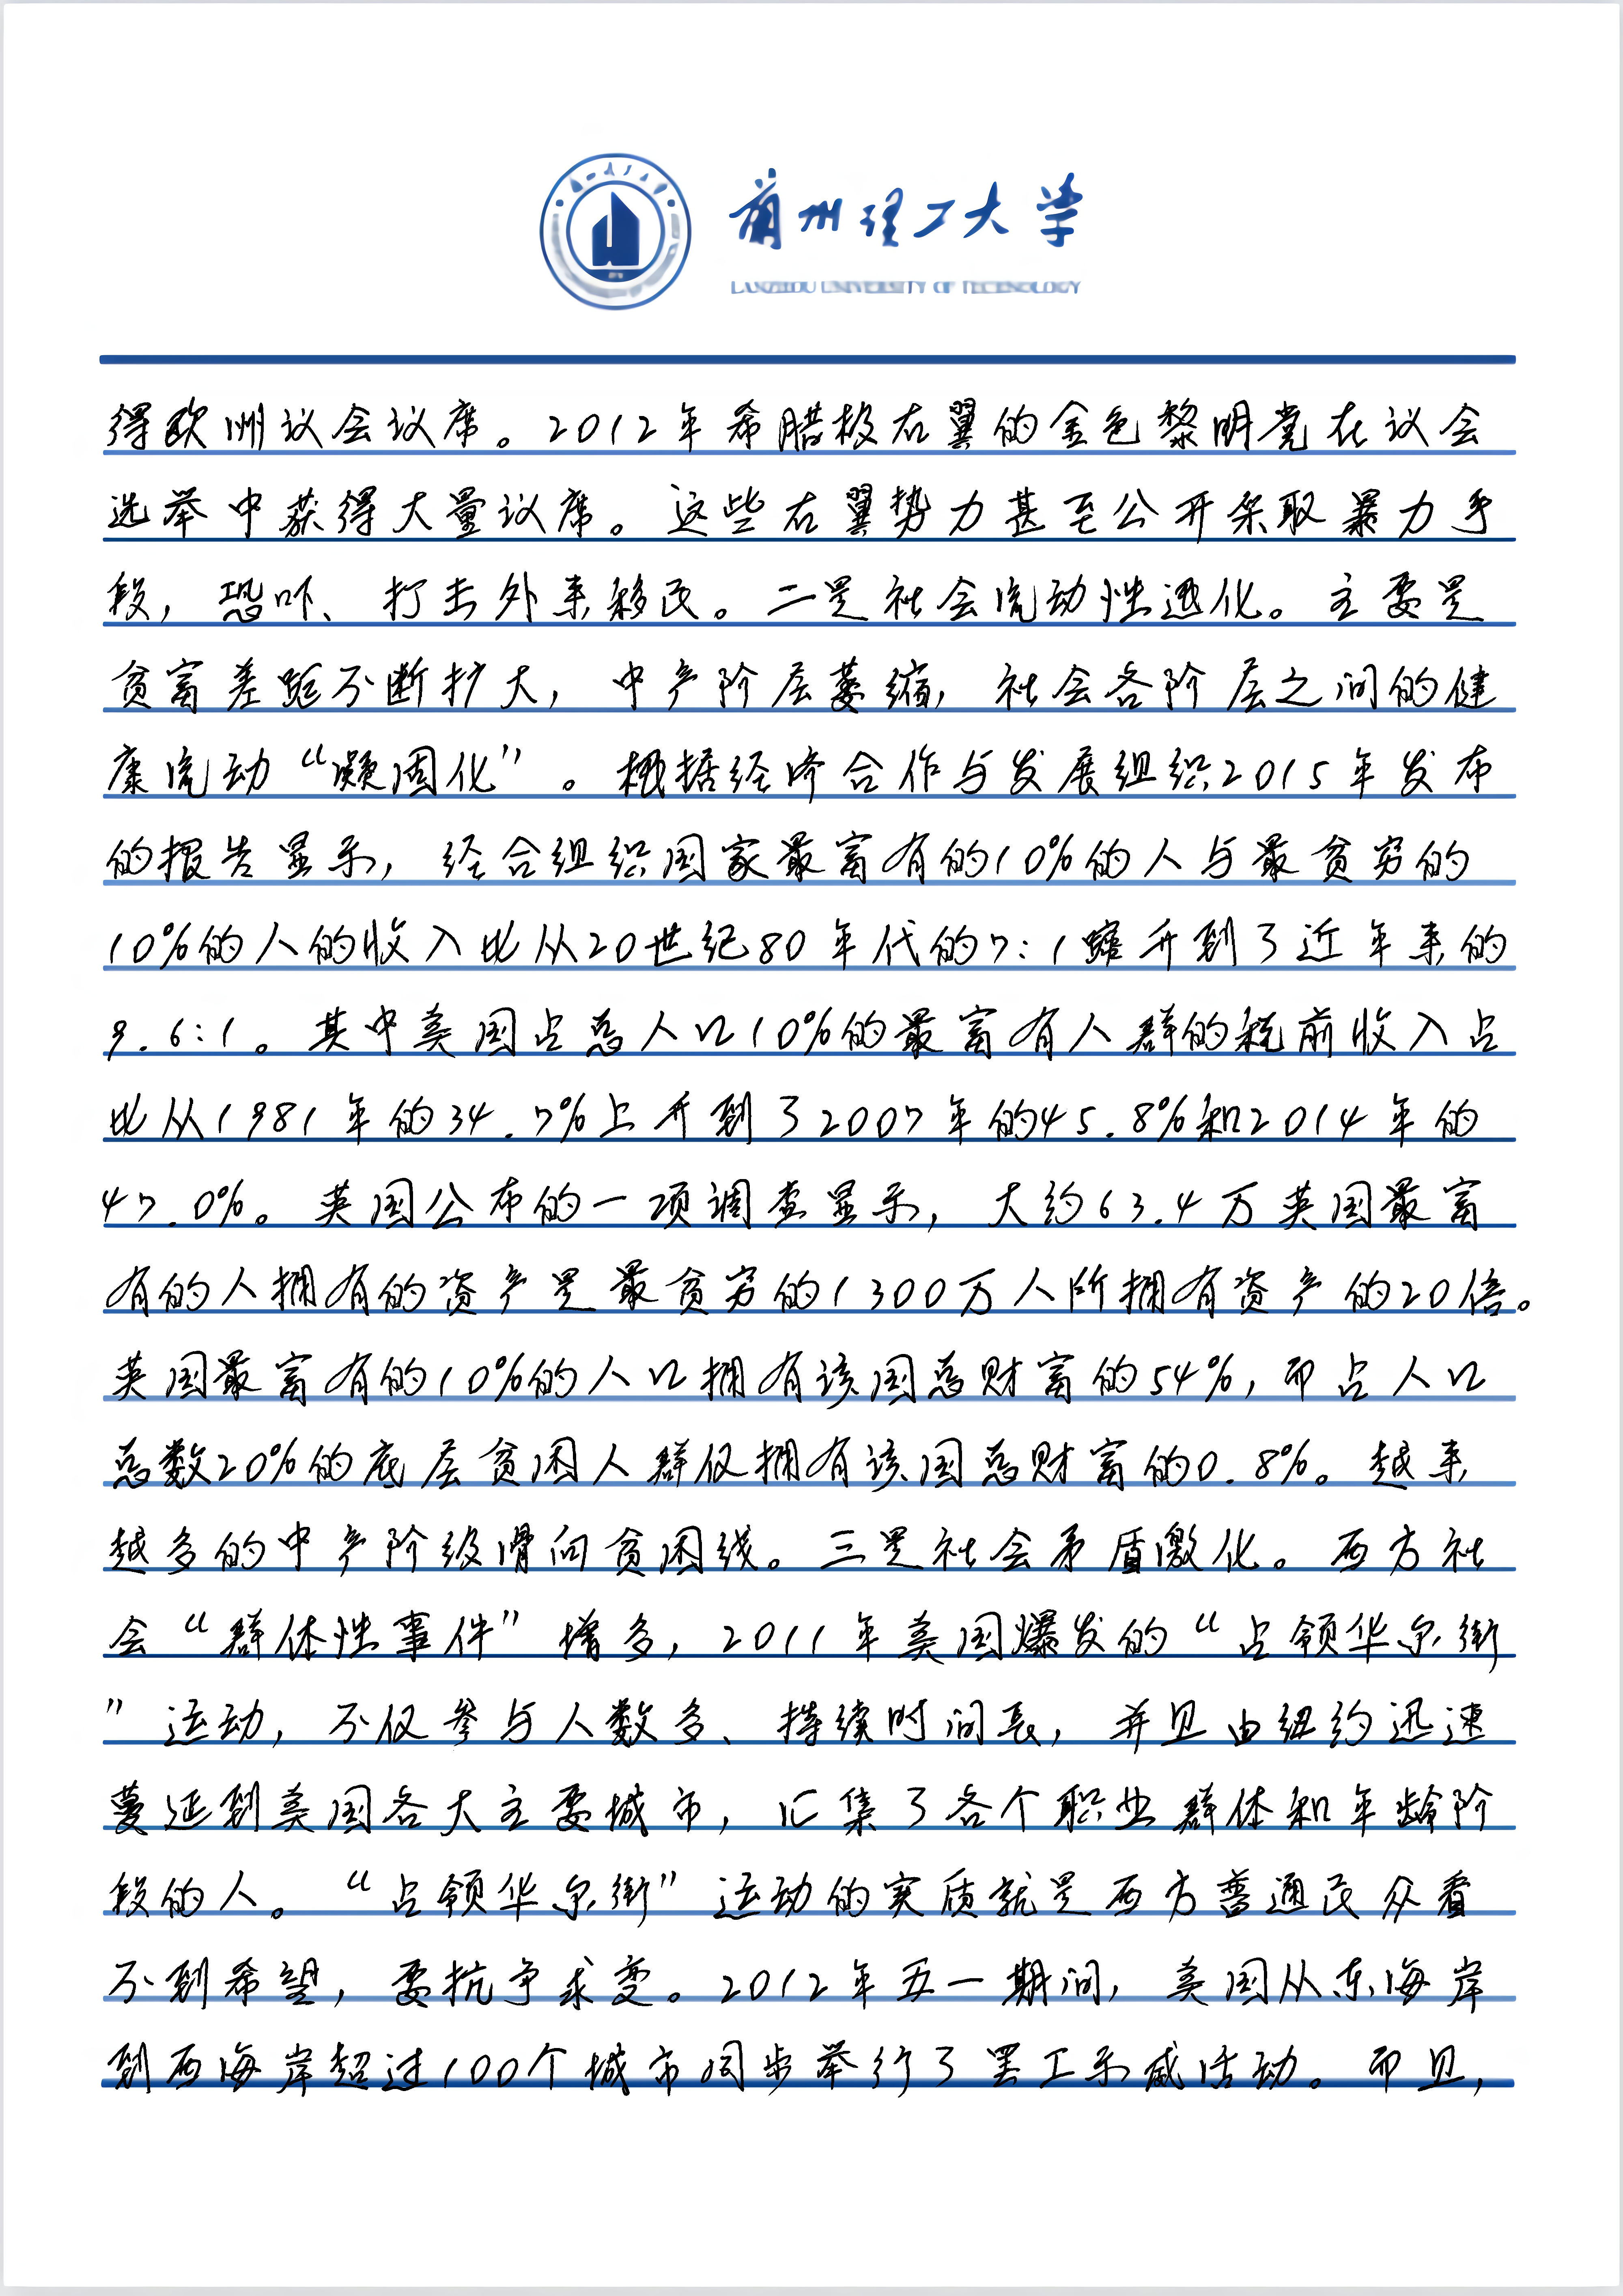 兰州理工大学
LANZHOU UNIVERSITY OF TECHNOLOGY
得欧洲议会议席。2012年希腊极右翼的金色黎明党在议会
选举中获得大量议席。这些右翼势力甚至公开采取暴力手
段，恐吓、打击外来移民。二是社会流动性退化。主要是
贫富差距不断扩大，中产阶层萎缩，社会各阶层之间的健
康流动“凝固化”。根据经济合作与发展组织2015年发布
的报告显示，经合组织国家最富有的10%的人与最贫穷的
10%的人的收入比从20世纪80年代的7:1蹿升到了近年来的
9.6:1。其中美国占总人口10%的最富有人群的税前收入占
比从1981年的34.7%上升到了2007年的45.8%和2014年的
47.0%。英国公布的一项调查显示，大约63.4万英国最富
有的人拥有的资产是最贫穷的1300万人所拥有资产的20倍。
英国最富有的10%的人口拥有该国总财富的54%，而占人口
总数20%的底层贫困人群仅拥有该国总财富的0.8%。越来
越多的中产阶级滑向贫困线。三是社会矛盾激化。西方社
会“群体性事件”增多，2011年美国爆发的“占领华尔街
”运动，不仅参与人数多、持续时间长，并且由纽约迅速
蔓延到美国各大主要城市，汇集了各个职业群体和年龄阶
段的人。“占领华尔街”运动的实质就是西方普通民众看
不到希望，要抗争求变。2012年五一期间，美国从东海岸
到西海岸超过100个城市同步举行了罢工示威活动。而且，